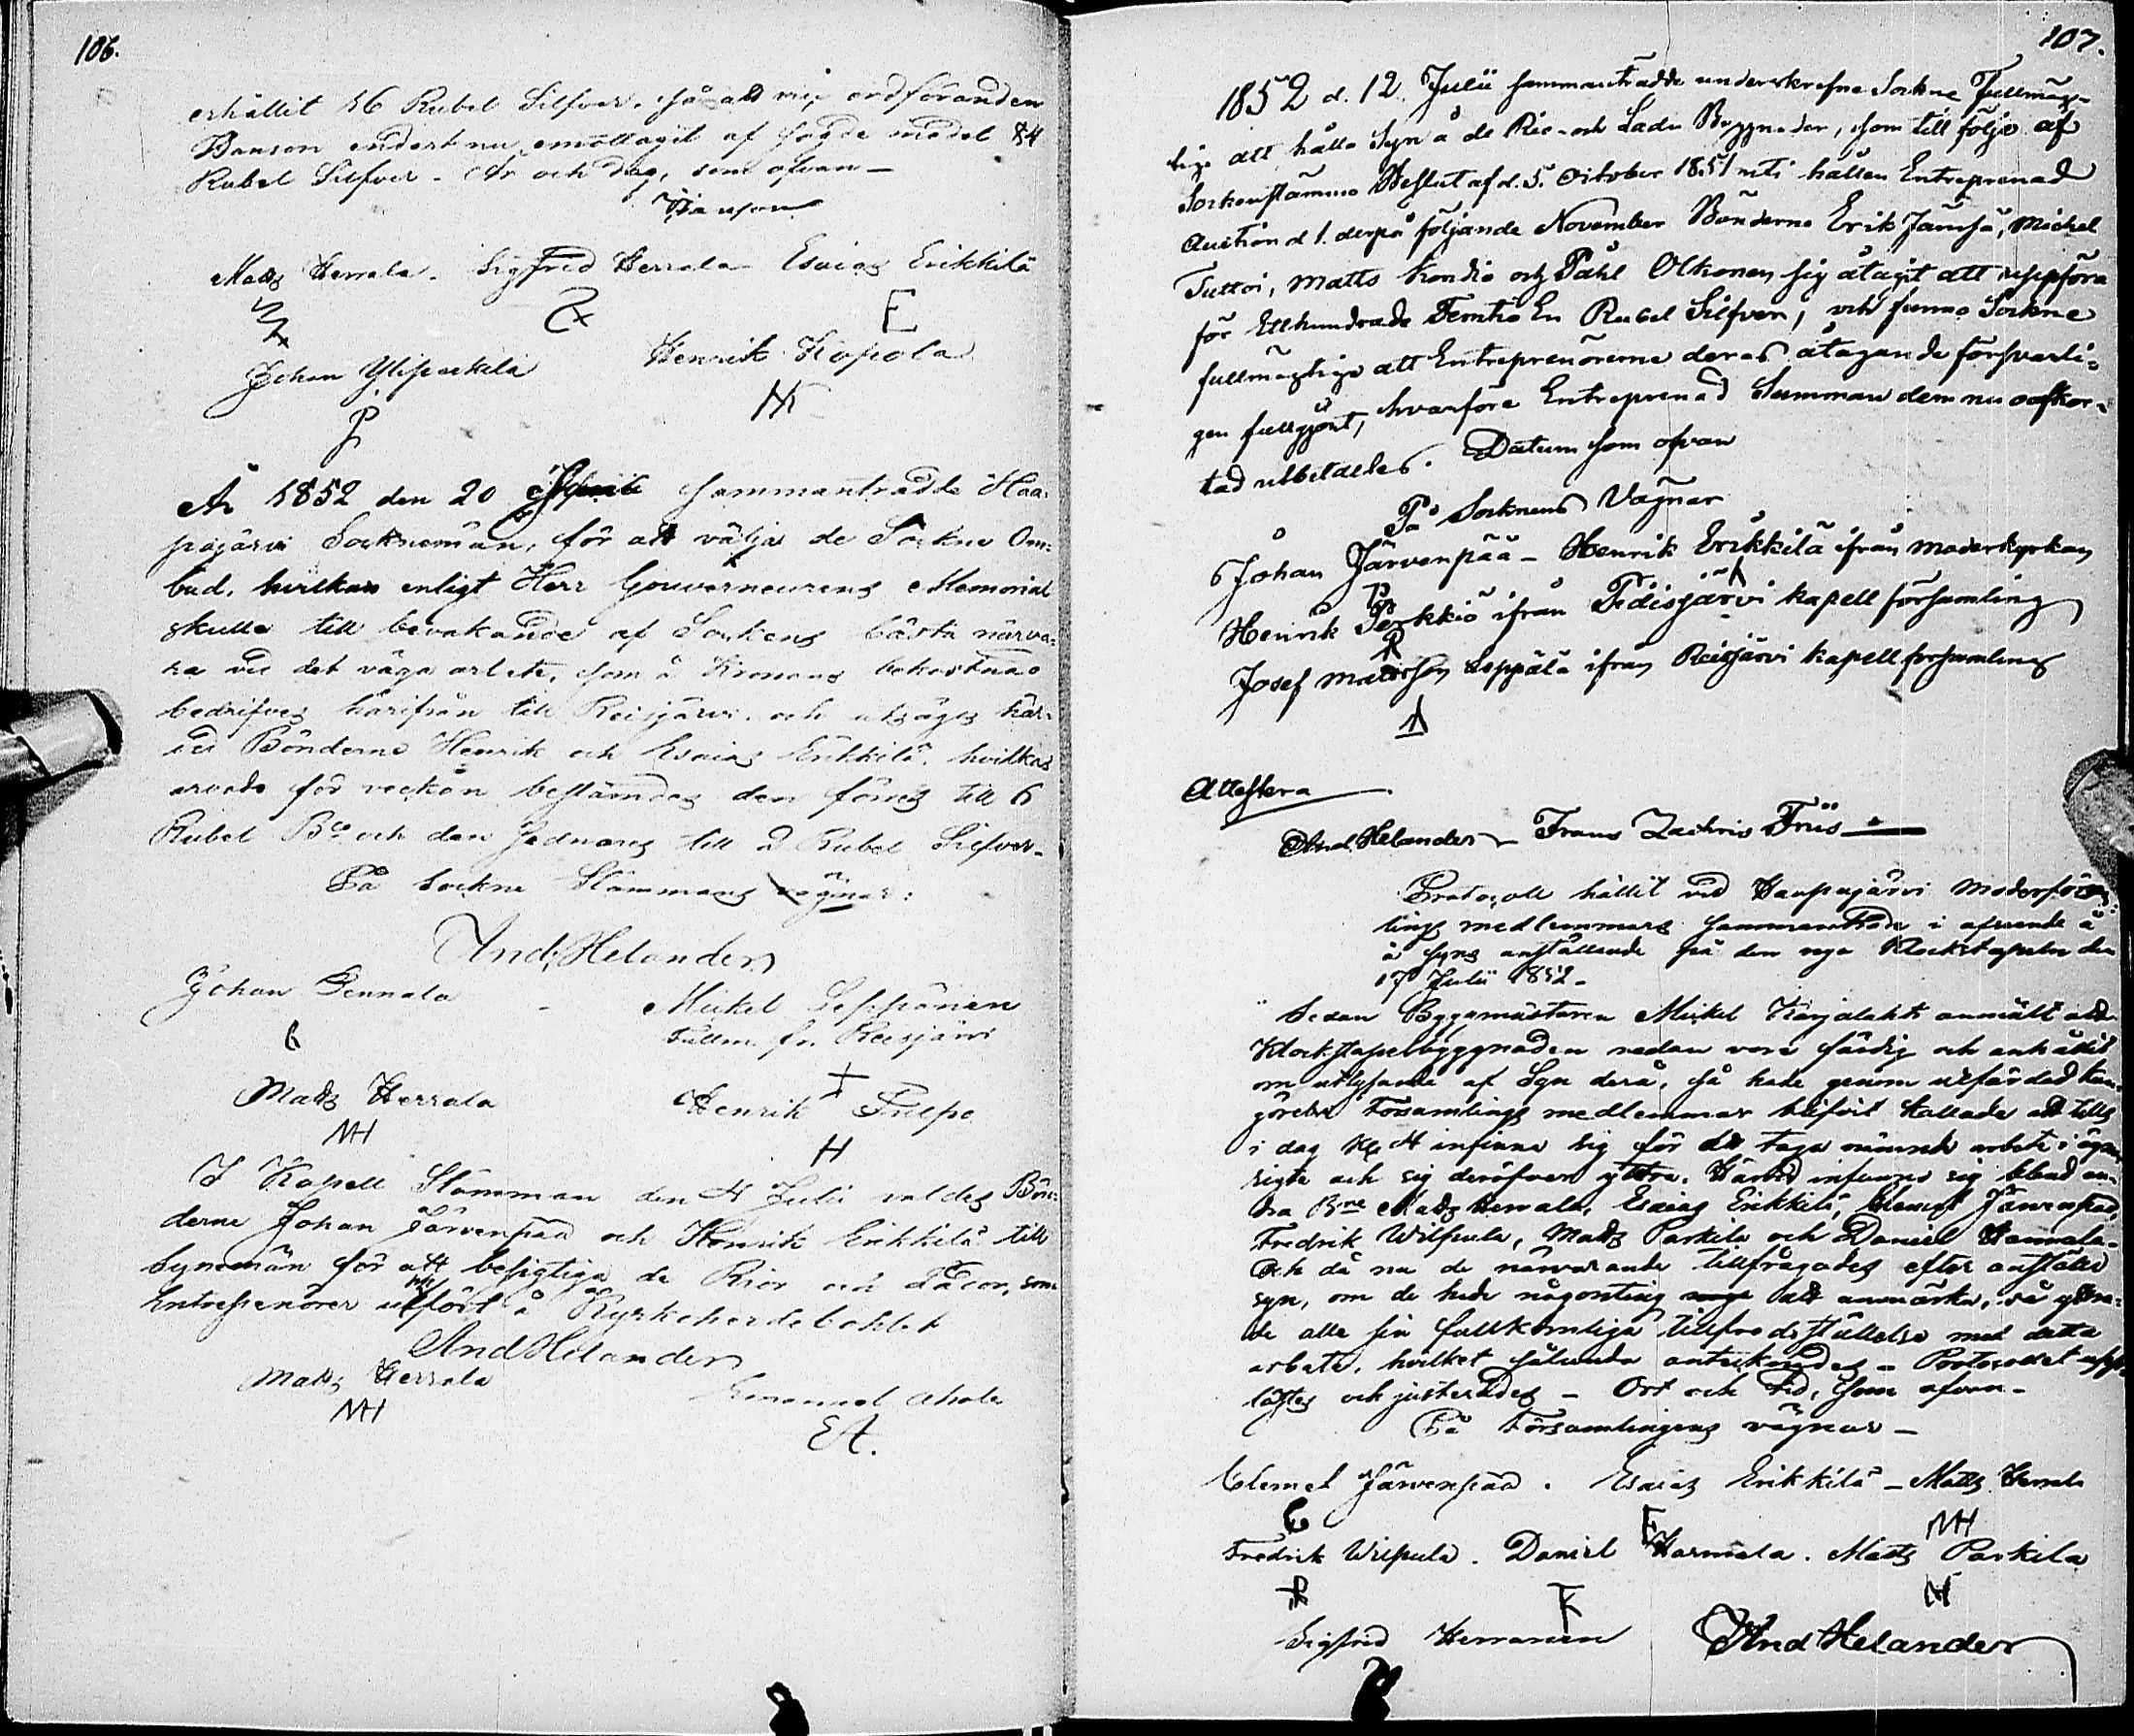 106.
erhållit 16 Rubel Silfver. så att vice ordföranden
Banson endast nu emottagit af sagde medel 84
Rubel Silfver - År och dag, som ofvan -
Banson
Matts Herrala. Sigfred Herrala Esaias Erikkilä
E
Johan Yliparkila Henrik Kopola
År 1852 den 20 sammanträdde Haa-
pajärvi Sockneman, för att välja de Sockne Om-
bud, hvilka enligt Herr Gouverneurens Memorial
skulle till bevakande af Sockens bästa närva-
ra vid det väga arbete, som å Kronans bekostnad
bedrifves härifrån till Reisjärvi. och utsågs här-
vid Bönderne Henrik och Esaias Erikkilä, hvilkas
arvode för veckan bestämdes den förres till 6
Rubel Bco och den sednares till 2 Rubel Silfver-
På Sockne Stämmans vägnar:
And: Helander
Johan Pennala Mickel Seppänen
Fullm. fr. Reisjärvi
Matts Herrala Henrik Pulpo
MH H
I Kapell Stämman den 4 Julii valdes Bön-
derne Johan Järvenpää och Henrik Erikkilä till
Synemän för att besigtiga de Rior och Lador, som
Entreprenörer uppfört å Kyrkoherdebohlet
And Helander
Matts Herrala Emanuel Ahola
MH EA.
107.
1852 d. 12 Julii sammanträdde underskrefne Sockne Fullmäg-
tige att hålla Syn å de Rie- och Ladu Byggnader, som till följe af
Sockenstämmo Beslut af d. 5. October 1851 uti hållen Entreprenad
Auction d 1. derpå följande November Bönderne Erik Jämsä, Mickel
Tuttoi, Matts Kondio och Påhl Olkonen sig åtagit att uppföra
för Etthundrade Femtio En Rubel Silfver, och funno Sockne
fullmägtige att Entreprenörerne deras åtagande försvarli-
gen fullgjort, hvarföre Entreprenad Summan dem nu oafkor-
tad utbetaltes. Datum som ofvan
På Socknens Vägnar
Johan Järvenpää - Henrik Erikkilä ifrån moderkyrkan
Henrik Perkkiö ifrån Pidisjärvi kapell församling
Josef Matsson Seppälä ifrån Reisjärvi kapell församling
Attestera
And. Helander - Frans Zachris Friis
Protocoll hållit vid Haapajärvi Moderförsam-
lings medlemmars sammanträde i afseende å
å syns anställande på den nya Klockstapeln den
17 Julii 1852.
Sedan Byggmästaren Mickel Karjalahti anmält att
Klockstapelbyggnaden redan vore färdig och anhållit
om utlysande af Syn derå, så hade genom utfärdad kun-
görelse Församlings medlemmar blifvit kallade att till
i dag Kl 4 infinna sig för att taga nämnde arbete i ögon-
sigte och sig deröfver yttra. Härvid infunno sig bland an-
dra Bne Matts Herrala, Esaias Erikkilä, Clemet Järvenpää,
Fredrik Wilpula, Matts Parkila och Daniel Harmala.
Och då nu de närvarande tillfrågades efter anställd
syn, om de hade någonting att anmärka, så yttra-
de alla sin fullkomliga tillfredsställelse med detta
arbete, hvilket sålunda antecknades - Protocollet upp-
lästes och justerades - Ort och tid, som ofvan -
På Församlingens vägnar -
Clemet Järvenpää. Esaias Erikkilä - Matts Herrala
C E MH
Fredrik Wilpula. Daniel Harmala. Matts Parkila
Sigfrid Herranen And Helander